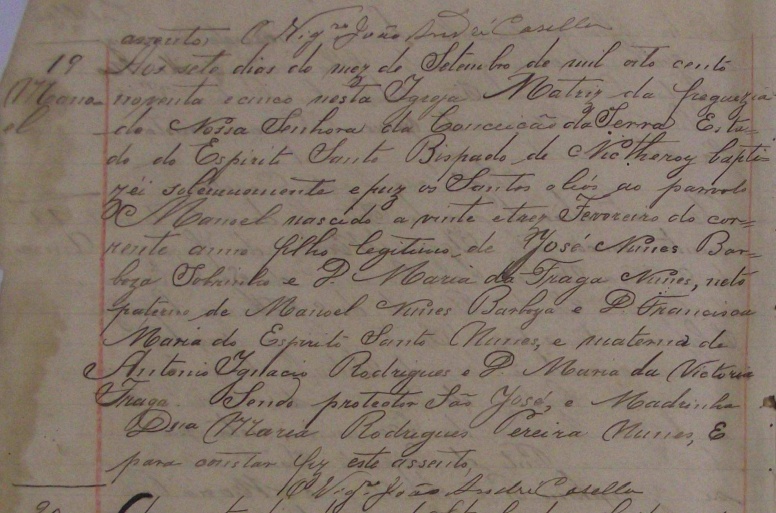 assento, O Vigrº João André Casella
19 Aos sete dias do mez de Setembro de mil oito cento
Mano- noventa e cinco nesta Igreja Matriz da freguezia
el do Nossa Senhora da Conceição da Serra Esta-
do do Espirito Santo Bispado de Nictheroy bapti-
zei solemnemente e puz os Santos oleós ao parvolo
Manoel nascido a vinte e trez Fevereiro do cor-
rente anno filho legitimo de José Nunes Bar-
boza Sobrinho e D. Maria da Fraga Nunes, neto
paterno de Manoel Nunes Barboza e D. Francisca
Maria do Espirito Santo Nunes, e materno de
Antonio Ignacio Rodrigues e D. Maria da Victoria
Fraga. Sendo protector São José, e Madrinha
Dna Maria Rodrigues Pereira Nunes, E
para constar fiz este assento,
O Vigrº João André Casella